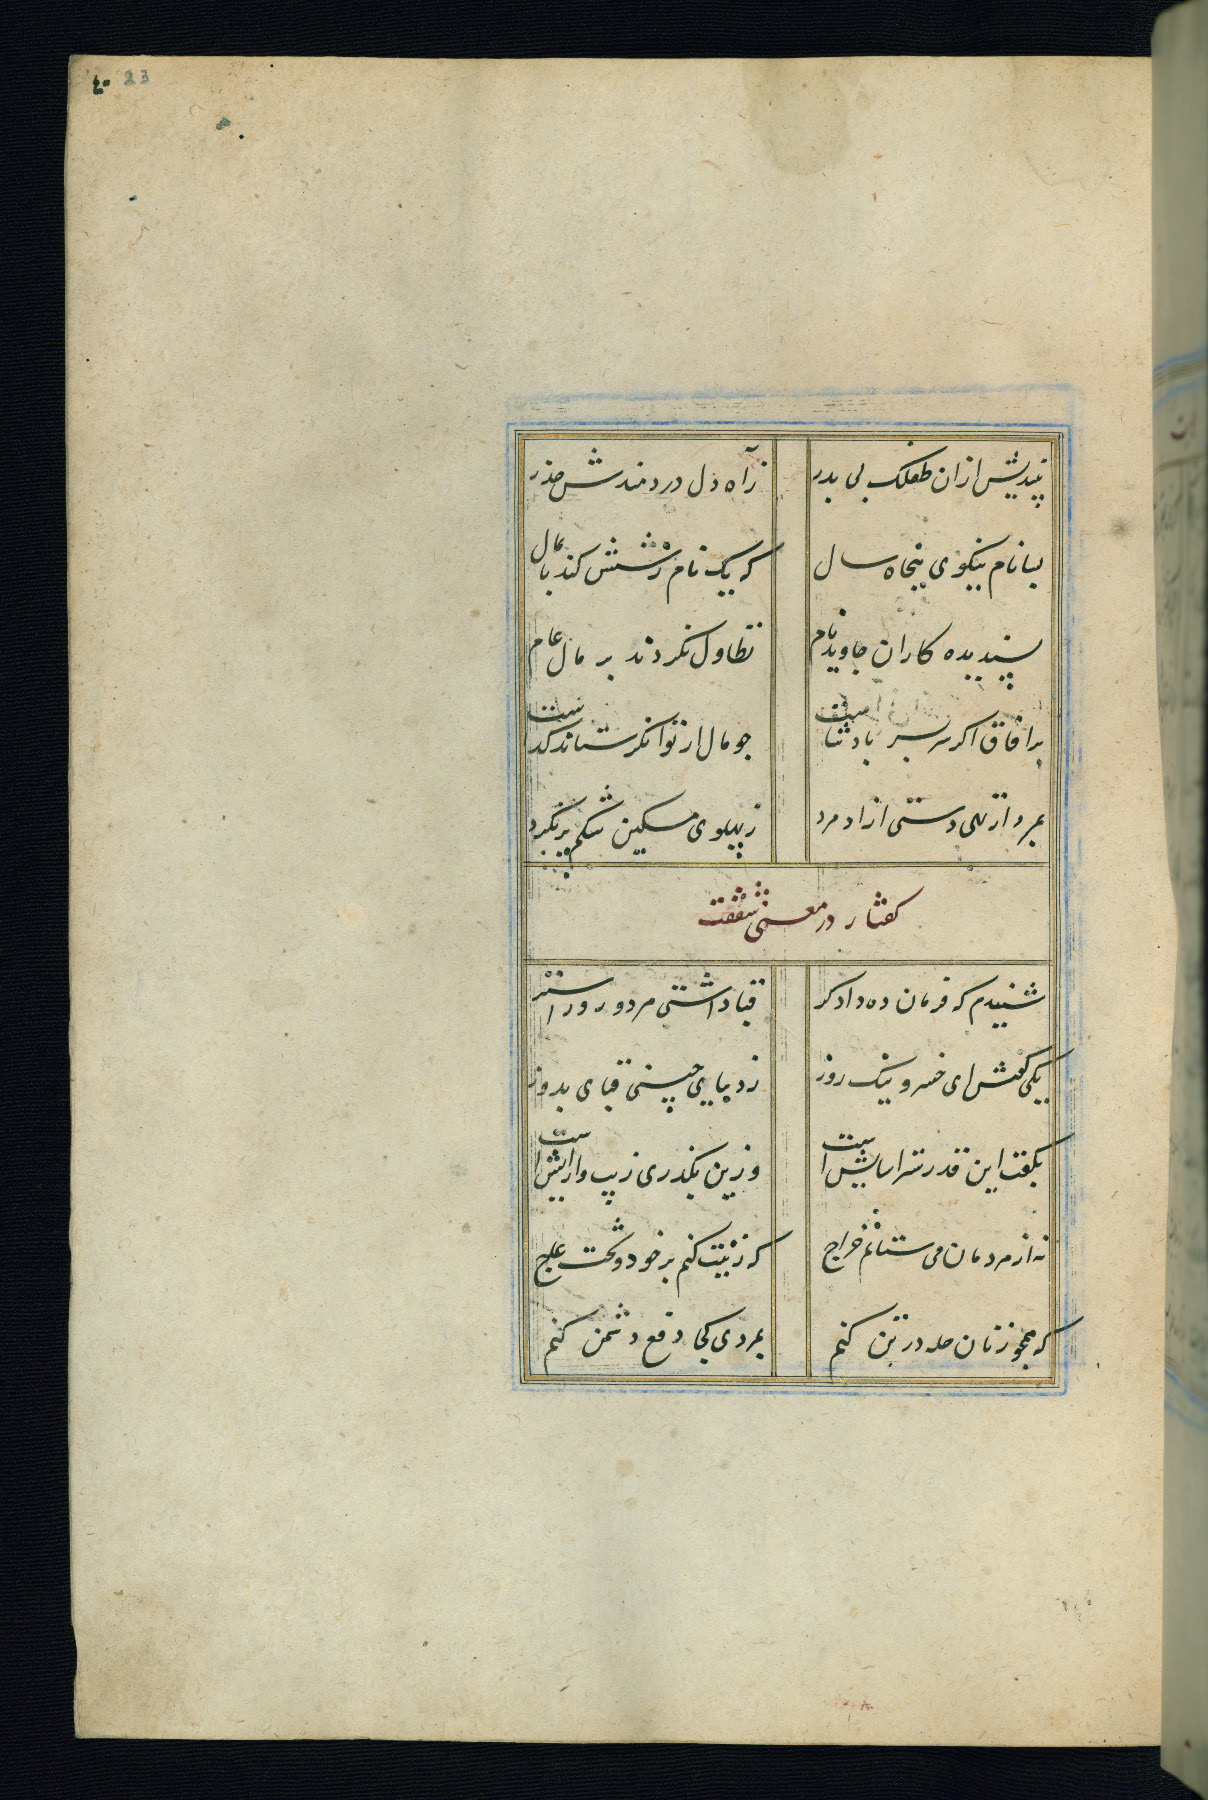 23
بیندیش ازان طفلک بی بدر زآه دل دردمندش حذر
بسا نام نیکوی پنجاه سال که یک نام زشتش کند بامال
پسندیده کاران جاوید نام تطاول نکردند بر مال عام
برافاق اکر سر بسر بادشاست جو مال از توانکر ستاند کداست
بمرد از تهی دستی ازاد مرد ز پهلوی مسکین شکم پر نکرد
کفتار در معنی شفقت
شنیدم که فرمان ده دادکر قبا داشتی هر دو رو استر
یکی کفتش ای خسرو نیک روز ز دیبای چینی قبای بدوز
بکفت این قدر ستر اسایش است وزین بکذری زیب وارایش است
نه از مردمان می ستانم خراج که زینت کنم بر خود و تخت عاج
که همچو زنان حله در تن کنم بمردی کجا دفع دشمن کنم